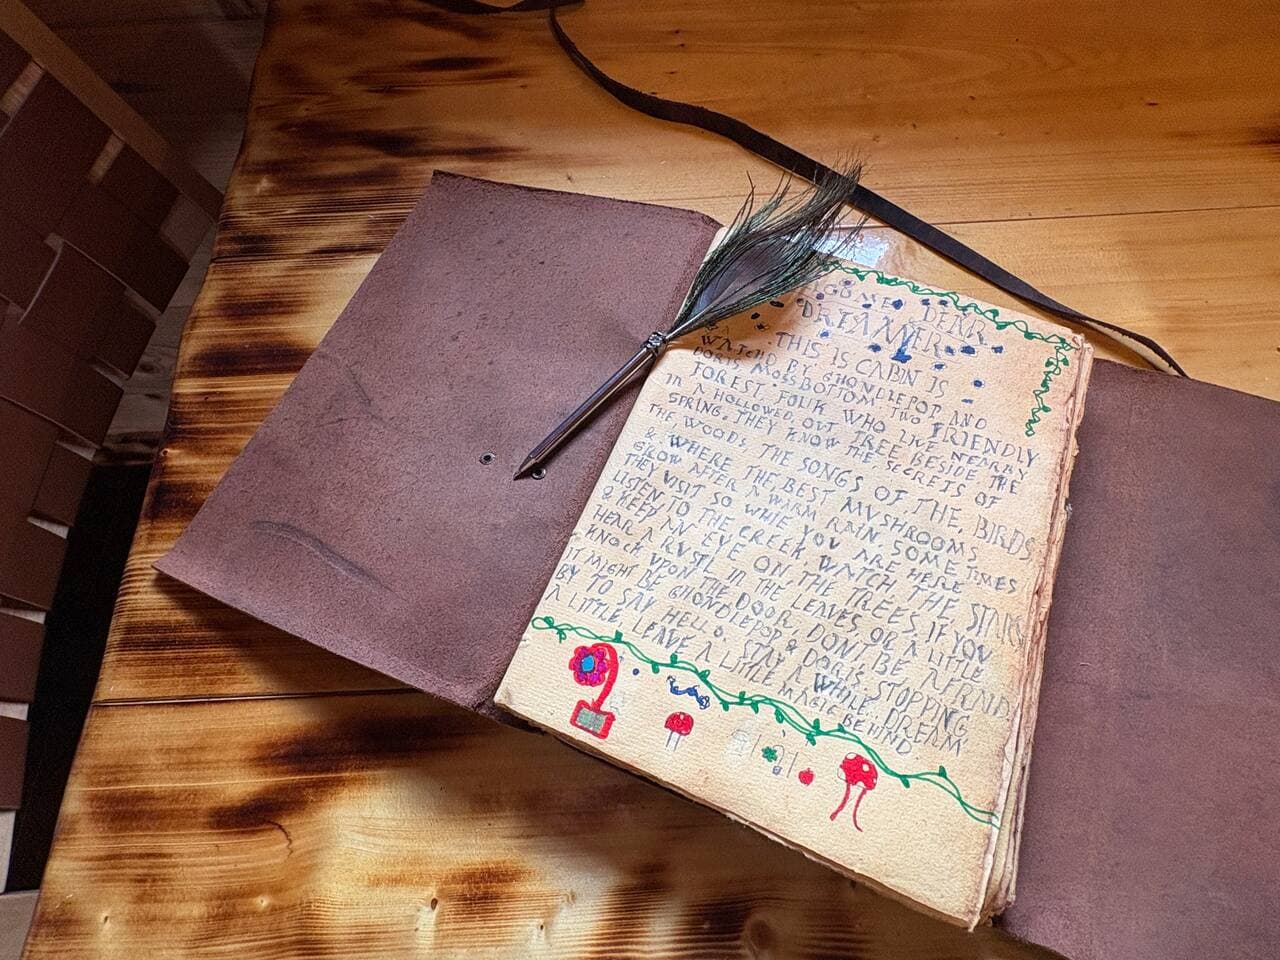 DEAR
DREAMER,
THIS IS CABIN IS
WATCHD BY GHONDLEPOP AND
DORIS MOSSBOTTOM, TWO FRIENDLY
FOREST FOLIK WHO LIVE NEARBY
IN A HOLLOWED OUT TREE BESIDE THE
SPRING. THEY KNOW THE SECRETS OF
THE WOODS, THE SONGS OF THE BIRDS,
& WHERE THE BEST MUSHROOMS
GROW AFTER A WARM RAIN. SOME TIMES
THEY VISIT SO WHIE YOU ARE HERE
LISTEN TO THE CREEK WATCH THE
& KEEP AN EYE ON THE TREES. IF YOU
HEAR A RUSTL IN THE LEAVES OR A LITTLE
KNOCK UPON THE DOOR DON'T BE AFRAID.
IT MIGHT BE GHONDLEPOP & DORIS STOPPING
BY TO SAY HELLO. STAY A WHILE, DREAM
A LITTLE LEAVE A LITTLE MAGIC BEHIND.